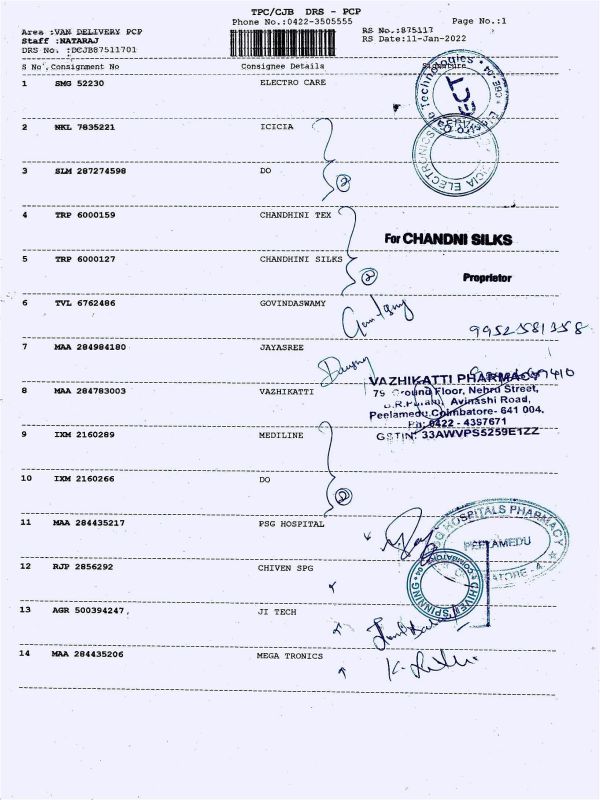 TPC/CJB DRS - PCP
Phone No.:0422-3505555
Page No.:1
Area :VAN DELIVERY PCP
Staff :NATARAJ
DRS No. :DCJB87511701
RS No.:875117
RS Date:11-Jan-2022
S No. Consignment No Consignee Details Signature
1 SMG 52230 ELECTRO CARE
2 NKL 7835221 ICICIA
3 SLM 287274598 DO
4 TRP 6000159 CHANDHINI TEX
For CHANDNI SILKS
5 TRP 6000127 CHANDHINI SILKS
Proprietor
6 TVL 6762486 GOVINDASWAMY
9952581358
7 MAA 284984180 JAYASREE
8 MAA 284783003 VAZHIKATTI
VAZHIKATTI PHARMACY
79 Ground Floor, Nehru Street,
Avinashi Road,
Peelamedu, Coimbatore- 641 004.
Ph: 0422 - 4397671
GSTIN: 33AWVPS5259E1ZZ
9 IXM 2160289 MEDILINE
10 IXM 2160266 DO
11 MAA 284435217 PSG HOSPITAL
HOSPITALS PHARMACY
PEELAMEDU
12 RJP 2856292 CHIVEN SPG
CHIVEN SPINNING
13 AGR 500394247, JI TECH
14 MAA 284435206 MEGA TRONICS